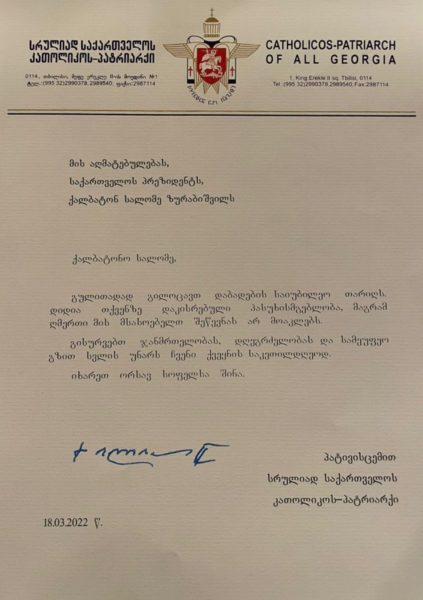 სრულიად საქართველოს
კათოლიკოს-პატრიარქი
0114, თბილისი, მეფე ერეკლე II-ის მოედანი №1
ტელ.:(995 32)2990378,2989540; ფაქსი:2987114
CATHOLICOS-PATRIARCH
OF ALL GEORGIA
1, King Erekle II sq. Tbilisi, 0114
Tel.:(995 32)2990378,2989540, Fax:2987114
მის აღმატებულებას,
საქართველოს პრეზიდენტს,
ქალბატონ სალომე ზურაბიშვილს
ქალბატონო სალომე,
გულითადად გილოცავთ დაბადების საიუბილეო თარიღს.
დიდია თქვენზე დაკისრებული პასუხისმგებლობა, მაგრამ
ღმერთი მის მსასოებელთ შეწევნას არ მოაკლებს.
გისურვებთ ჯანმრთელობას, დღეგრძელობას და სამეუფეო
გზით სვლის უნარს ჩვენი ქვეყნის საკეთილდღეოდ.
იხარეთ ორსავ სოფელსა შინა.
პატივისცემით
სრულიად საქართველოს
კათოლიკოს-პატრიარქი
18.03.2022 წ.